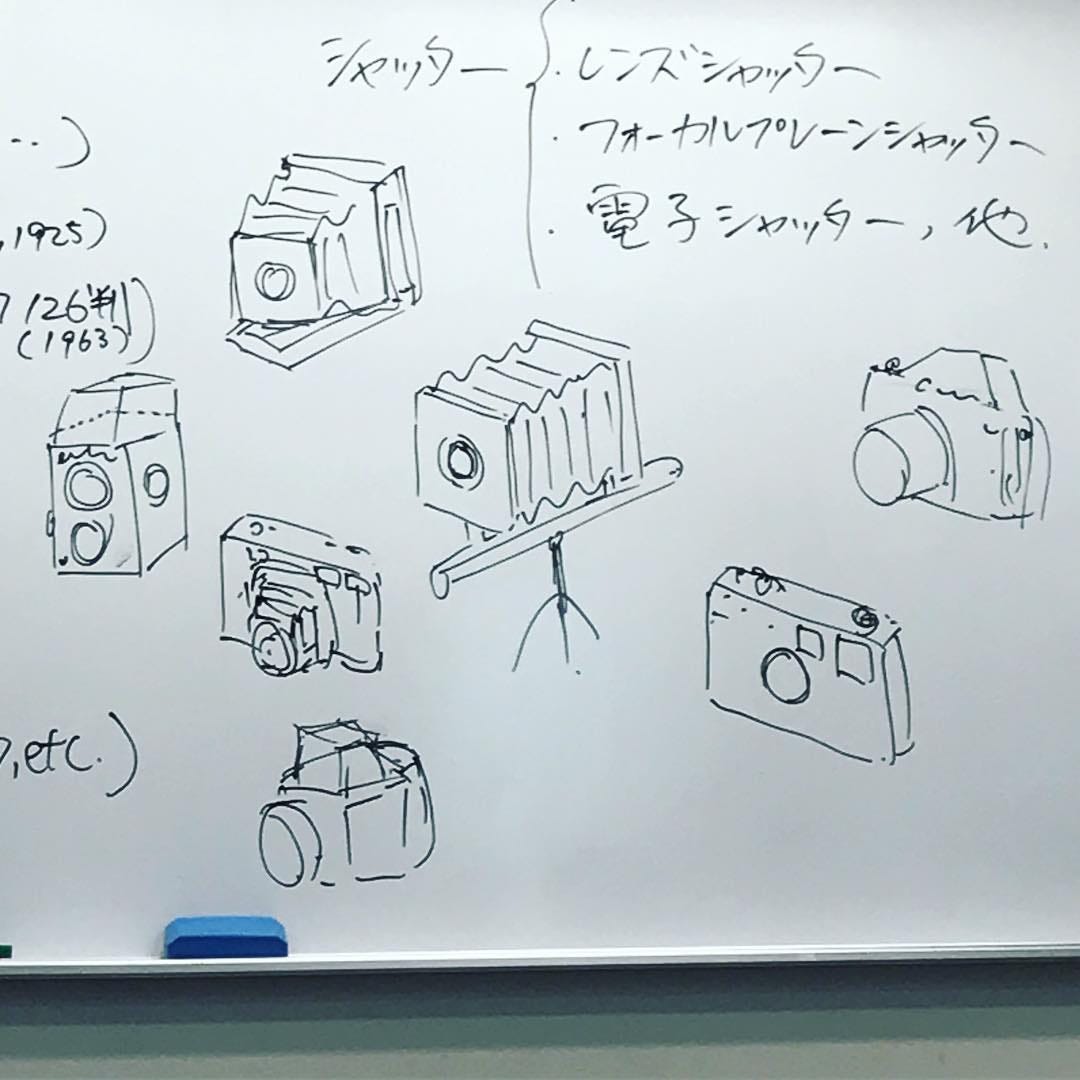 シャッター
・レンズシャッター
・フォーカルプレーンシャッター
・電子シャッター, 他.
…)
, 1925)
126判
(1963))
, etc.)